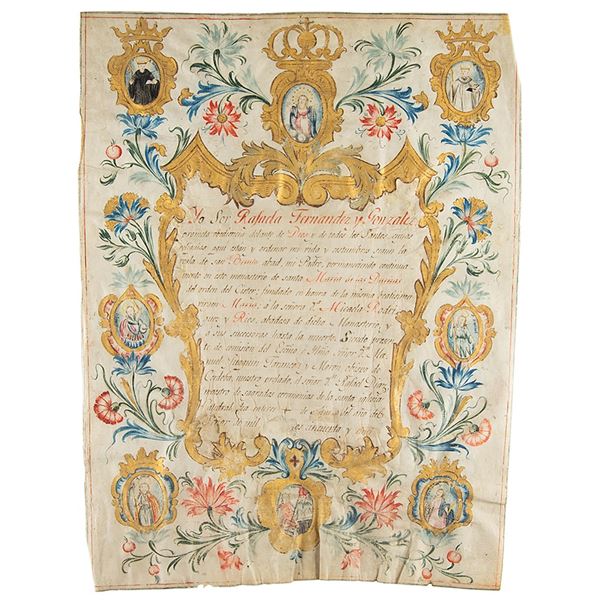 Yo Sor Rafaela Fernandez y Gonzalez
prometo obediencia delante de Dios, y de todos los Santos, cuias
reliquias aqui estan y ordenar mi vida y costumbres segun la
regla de san Benito abad, mi Padre, permaneciendo continua
mente en este monasterio de santa Maria de las Dueñas
del orden del Cister; fundado en honra de la misma beatissima
virgen Maria: a la señora Dª. Micaela Rodri
guez y Rios, abadesa de dicho Monasterio, y
a sus successoras hasta la muerte. Siendo presen
te de comision del Exmo e Illmo señor Dn. Ma
nuel Joaquin Tarancon y Moron obispo de
Cordoba, nuestro prelado, el señor Dn. Rafael Diaz
maestro de sagradas ceremonias de la santa iglesia
Catedral
de mil cincuenta y